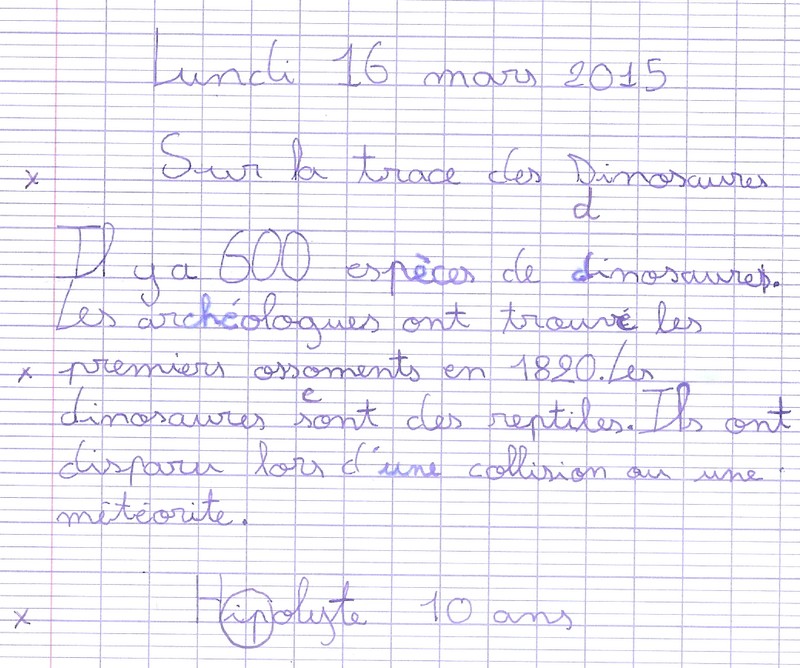 Lundi 16 mars 2015
x Sur la trace des Dinosaures
d
Il y a 600 espèces de dinosaures.
Les archéologues ont trouvé les
x premiers ossoments en 1820. Les
e
dinosaures sont des reptiles. Ils ont
disparu lors d'une collision au une
météorite.
x Hipolyte 10 ans